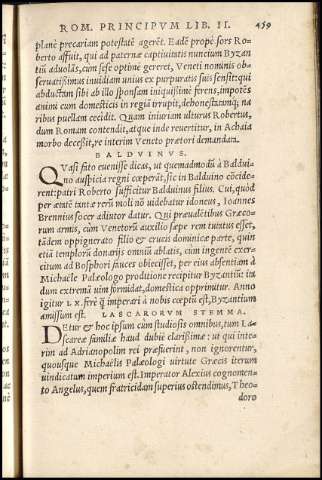 ROM. PRINCIPVM LIB. II. 459
planè precariam potestatẽ ageret. Eadẽ propè sors Ro-
berto affuit, qui ad paternæ captiuitatis nuncium Byzan
tiũ aduolãs, cum sese optimè gereret, Veneti nominis ob-
seruatissimus inuidiam unius ex purpuratis suis sensit: qui
abductam sibi ab illo sponsam iniquissimè ferens, impotẽs
animi cum domesticis in regiã irrupit, dehonestatamq; na
ribus puellam cecidit. Quam iniuriam ulturus Robertus,
dum Romam contendit, atque inde reuertitur, in Achaia
morbo decessit, re interim Veneto prætori demandata.
BALDVINVS.
Quasi fato euenisse dicas, ut quemadmodũ à Baldui-
no auspicia regni cœperãt, sic in Balduino cõcide-
rent: patri Roberto sufficitur Balduinus filius. Cui, quòd
per ætatẽ tantæ rerũ moli nõ uidebatur idoneus, Ioannes
Brennius socer adiutor datur. Qui præualẽtibus Græco-
rum armis, cùm Venetorũ auxilio sæpe rem tutatus esset,
tãdem oppignerato filio & crucis dominicæ parte, quin
etiã templorũ donarijs omniũ ablatis, cum ingentẽ exer-
citum ad Bosphori fauces obiecisset, per eius absentiam à
Michaële Palæologo proditione recipitur Byzantiũ: in
dum extremã uim formidat, domestica opprimitur. Anno
igitur LX. ferè q̃ imperari à nobis cœptũ est, Byzantium
amissum est. LASCARORVM STEMMA.
Detur & hoc ipsum cum studiosis omnibus, tum La-
scareæ familiæ haud dubiè clarissimæ: ut qui inte-
rim ad Adrianopolin rei præfuerint, non ignorentur,
quousque Michaëlis Palæologi uirtute Græcis iterum
uindicatum imperium est. Imperator Alexius cognomen-
to Angelus, quem fratricidam superius ostendimus, Theo-
doro